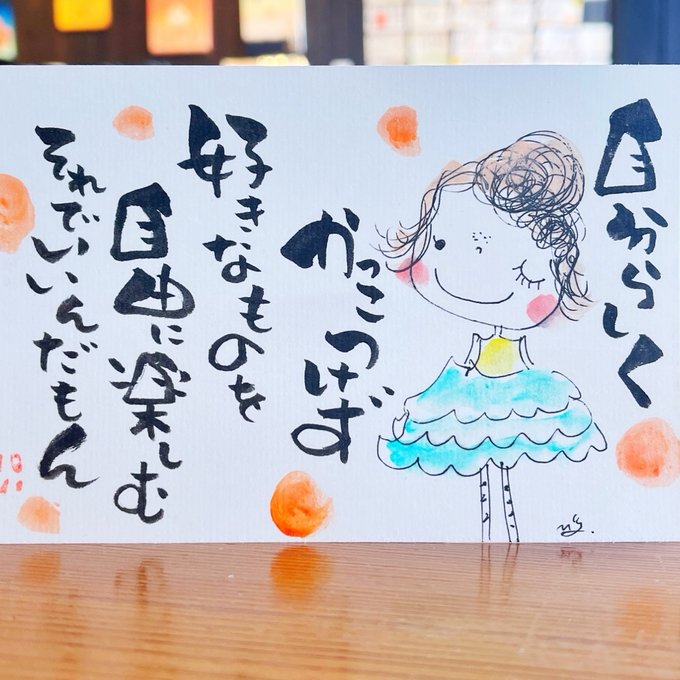 自分らしく
かっこつけず
好きなものを
自由に楽しむ
それでいいんだもん